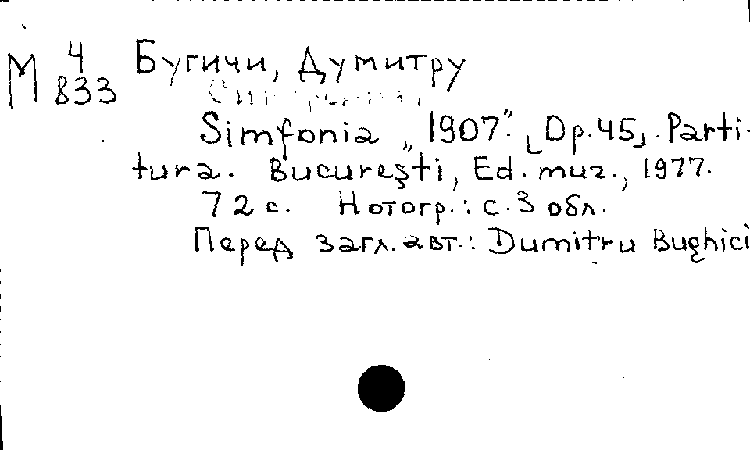 М 4 Бугичи, Думитру
833
Simfonia „1907". [Op. 45]. Parti-
tura. Bucureşti, Ed. muz., 1977.
72 с. Нотогр.: с. 3 обл.
Перед загл. авт.: Dumitru Bughici